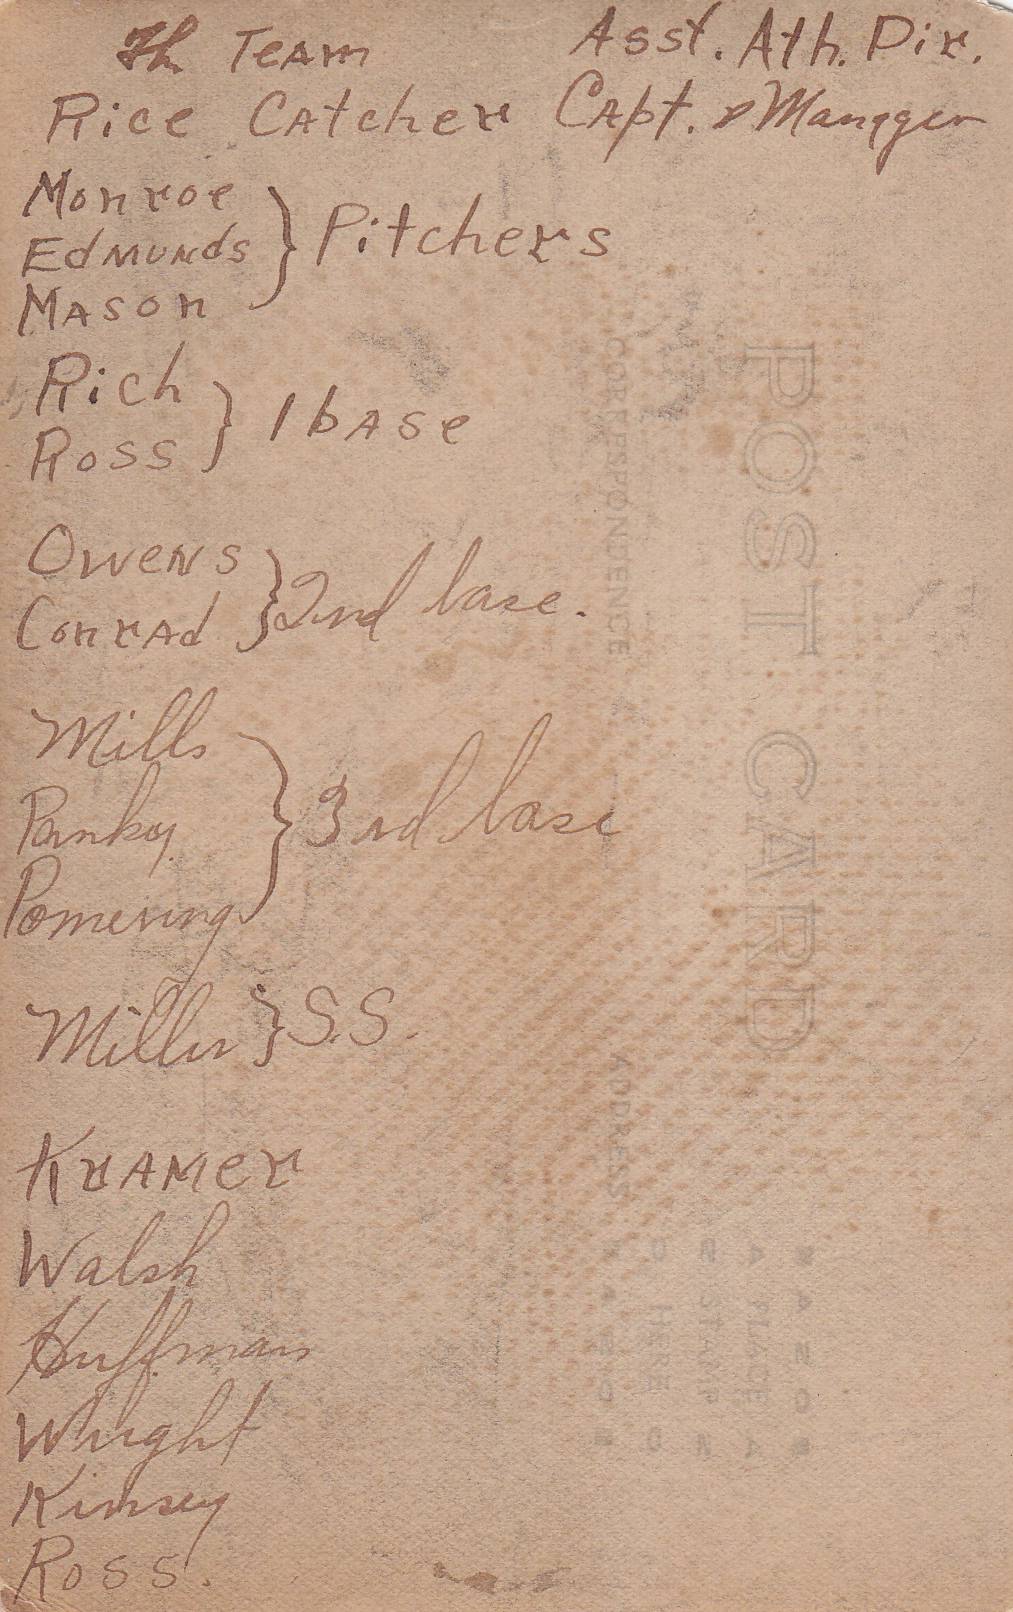 The Team Asst. Ath. Dir.
Rice Catcher Capt. & Mangger
Monroe
Edmunds } Pitchers
Mason
Rich
Ross } 1 base
Owens
Conrad } 2nd base.
Mills
Panky } 3rd base
Pomering
Miller } S.S.
Kramer
Walsh
Huffman
Whright
Kinsey
Ross.
POST CARD
CORRESPONDENCE
ADDRESS
PLACE
STAMP
HERE